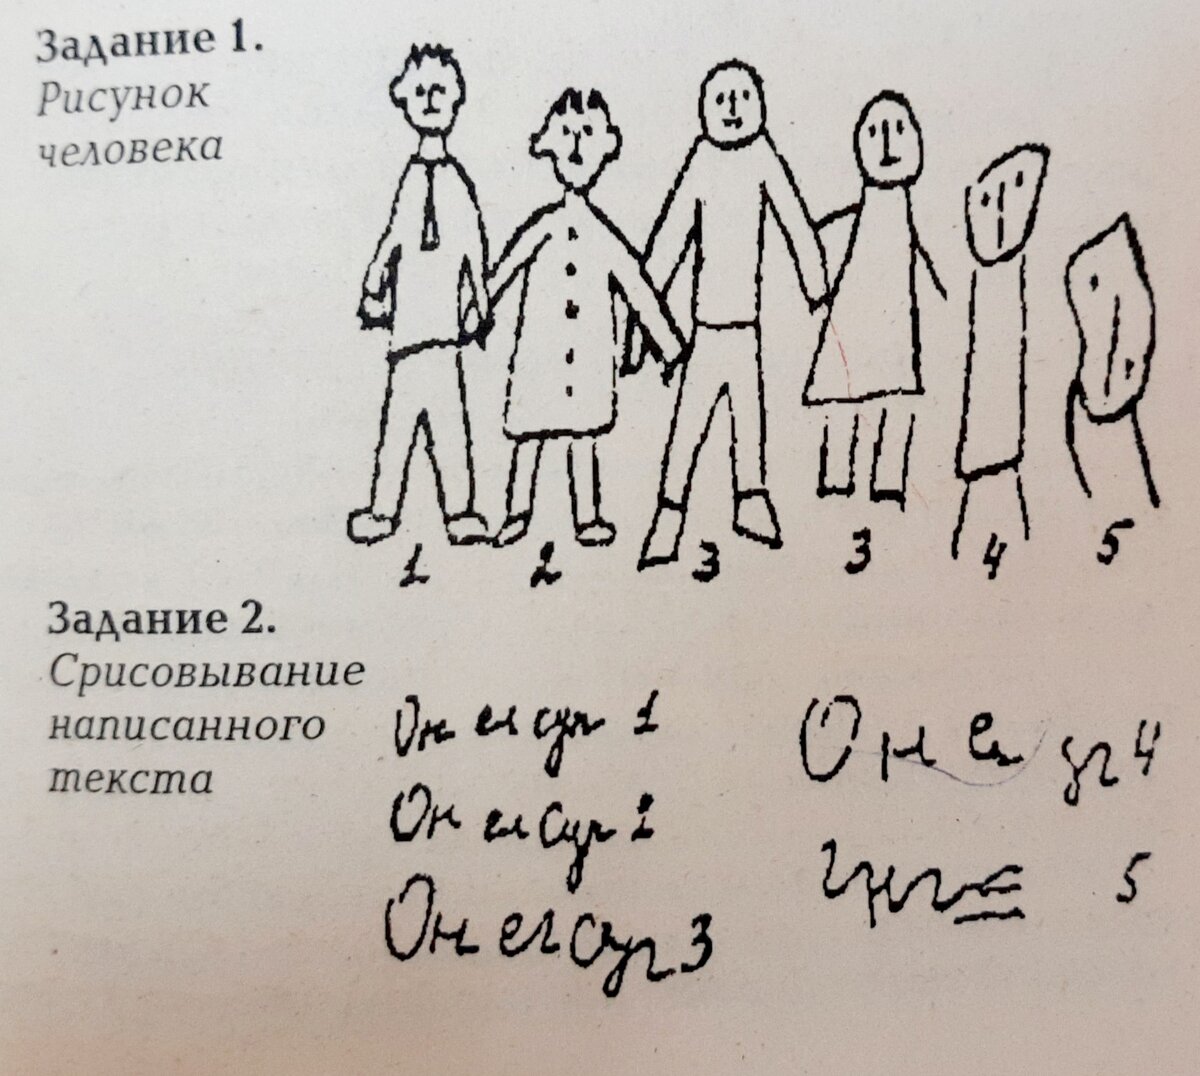 Задание 1.
Рисунок
человека
1 2 3 3 4 5
Задание 2.
Срисовывание
написанного
текста
Он ел суп 1
Он ел Суп 2
Он ел Суп 3
Он е 4
5